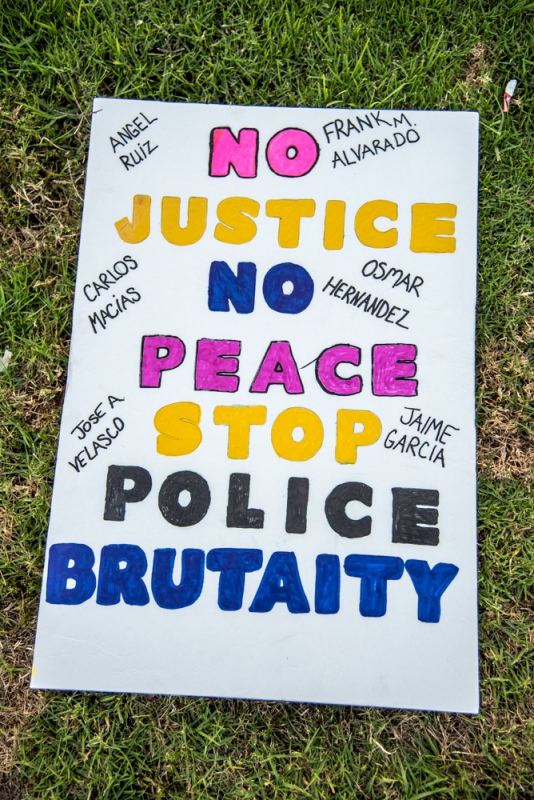 ANGEL
RUIZ
NO
FRANK M.
ALVARADO
JUSTICE
CARLOS
MACÍAS
NO
OSMAR
HERNANDEZ
PEACE
JOSE A.
VELASCO
STOP
JAIME
GARCIA
POLICE
BRUTAITY